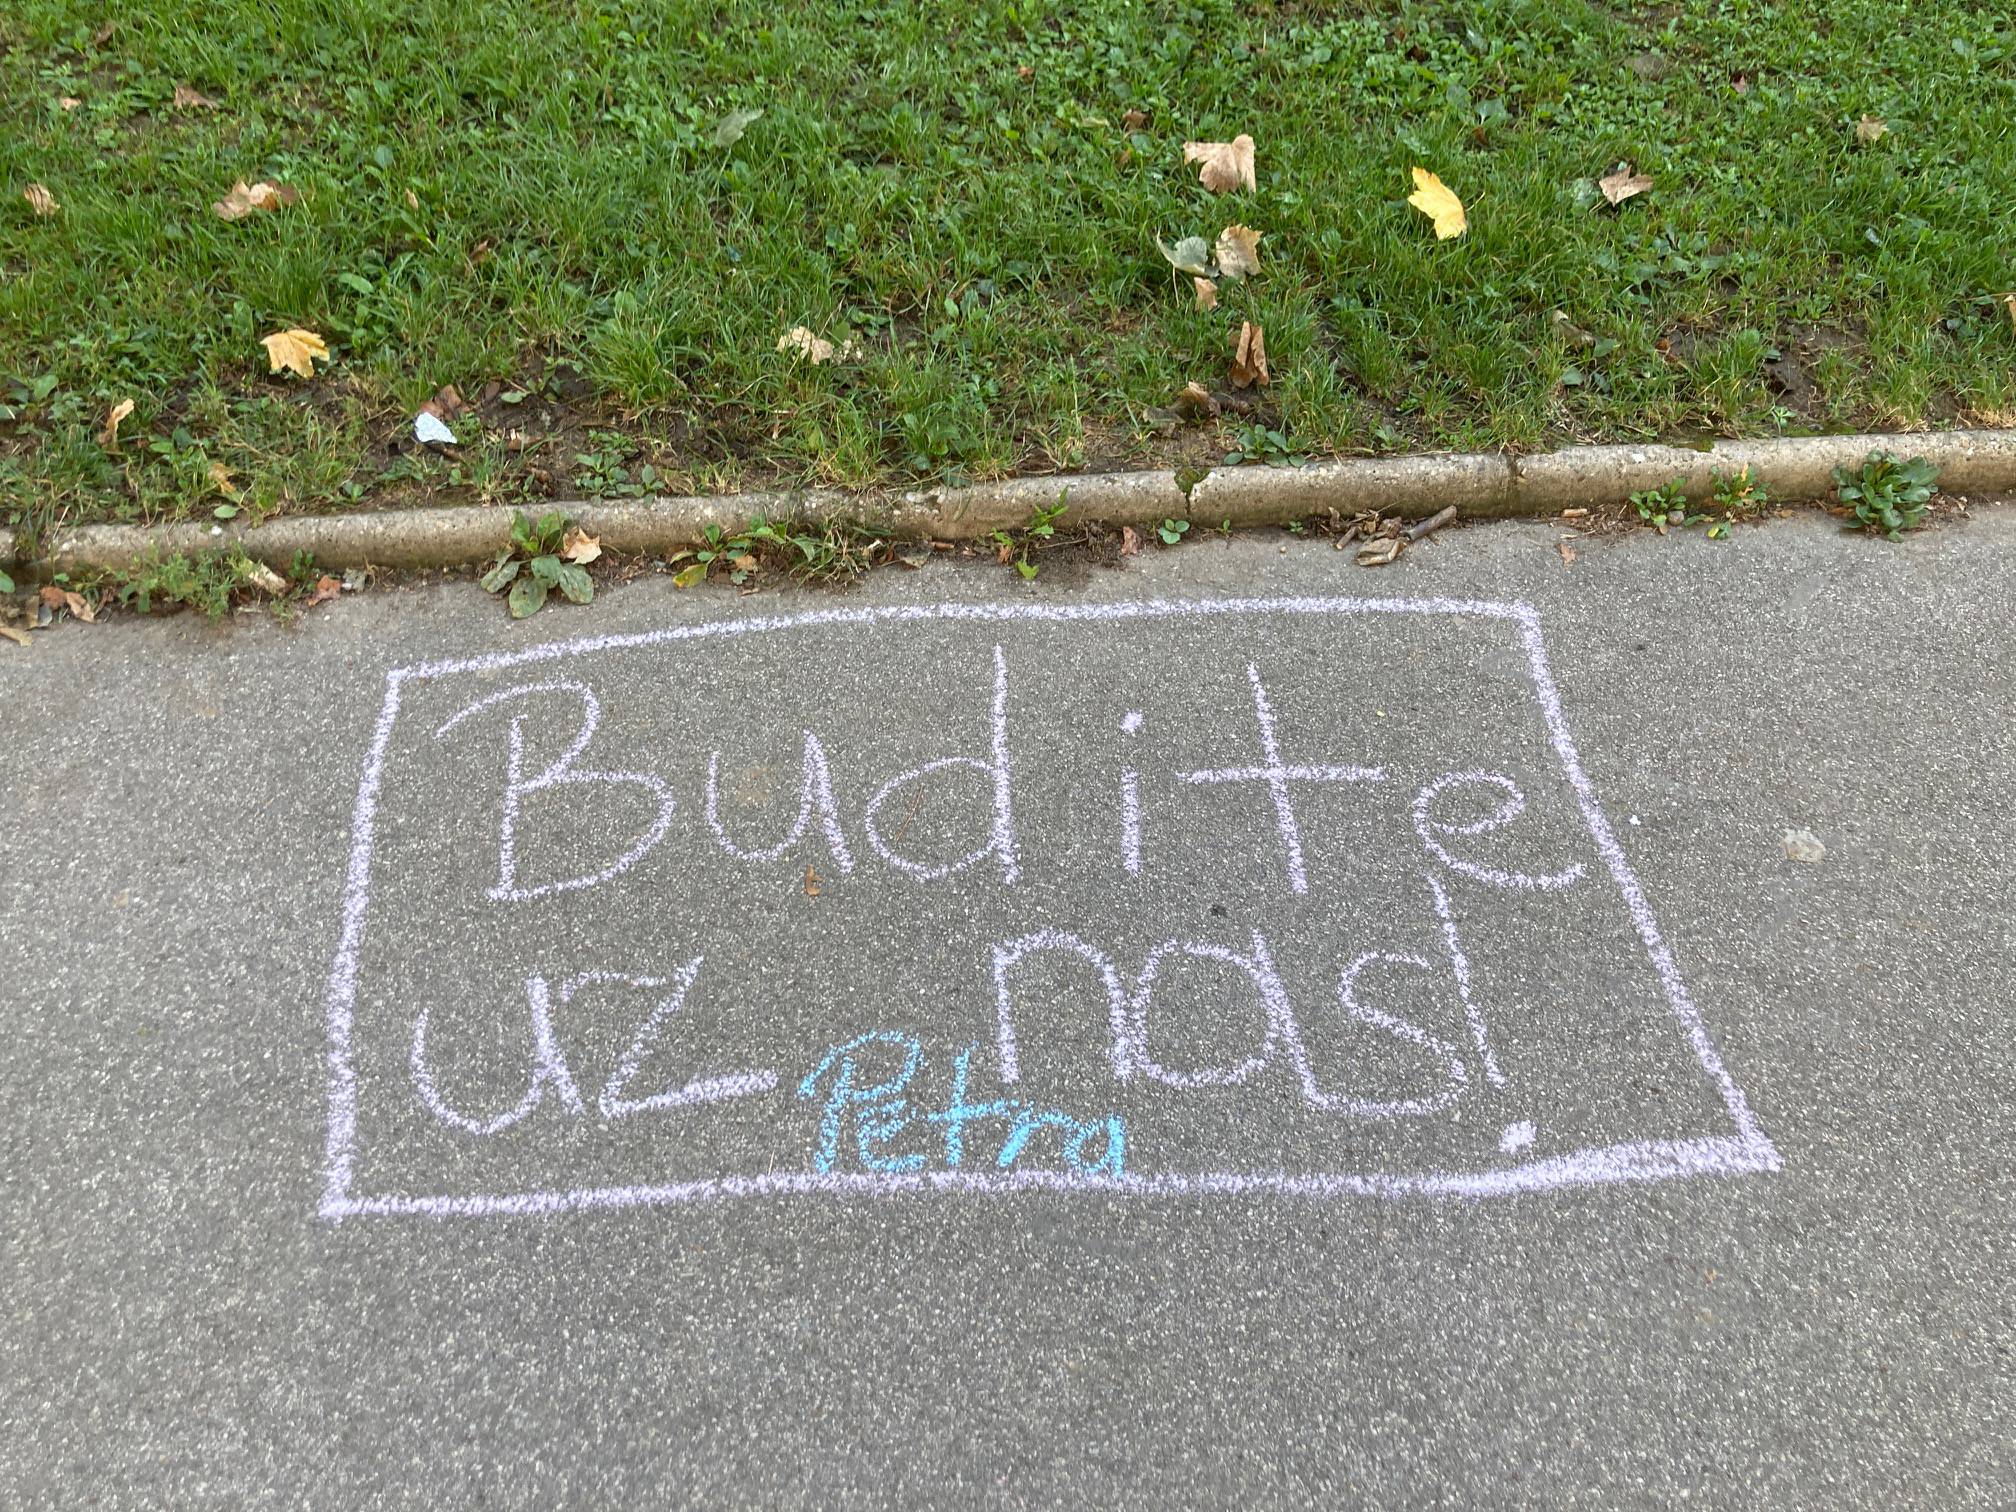 Budite
uz nas!
Petra